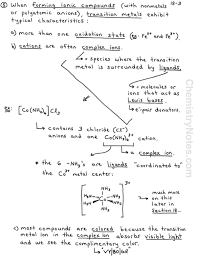 18-3
⑧ When forming ionic compounds (with nonmetals
or polyatomic anions), transition metals exhibit
typical characteristics:
a) more than one oxidation state (eg: Fe²⁺ and Fe³⁺).
b) cations are often complex ions.
↳ species where the transition
metal is surrounded by ligands.
↳ molecules or
ions that act as
Lewis bases.
↳ e⁻ pair donators.
eg: [Co(NH₃)₆]Cl₃
↳ contains 3 chloride (Cl⁻)
anions and one Co(NH₃)₆³⁺ cation.
↳ a complex ion.
• the 6 -NH₃'s are ligands "coordinated to"
the Co³⁺ metal center:
NH₃ 3+
H₃N NH₃
Co
H₃N NH₃
NH₃
much more
on this
later in
Section 18
c) most compounds are colored because the transition
metal ion in the complex ion absorbs visible light
and we see the complimentary color.
ChemistryNotes.com